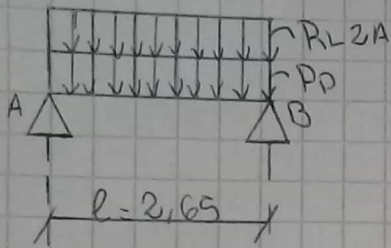 RL2A
PP
A
B
l=2,65